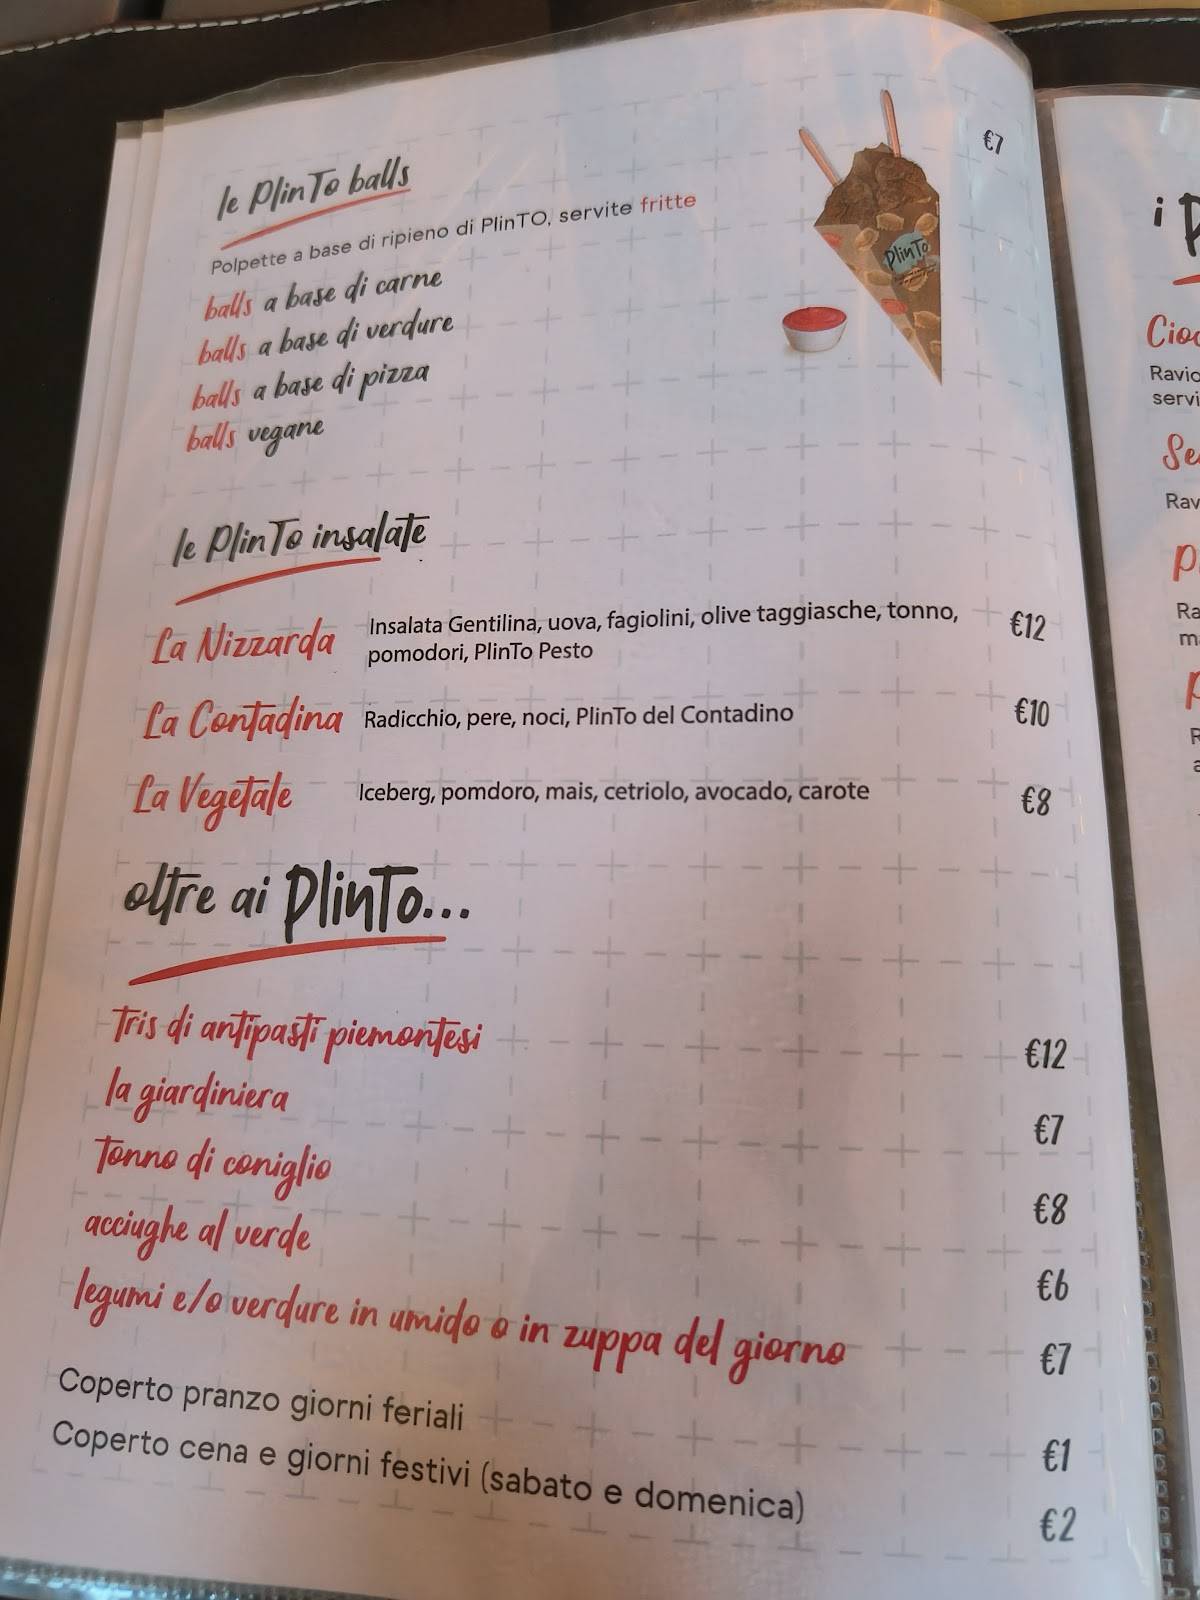 le PlinTo balls
€7
Polpette a base di ripieno di PlinTO, servite fritte
balls a base di carne
balls a base di verdure
balls a base di pizza
balls vegane
PlinTo
le PlinTo insalate
La Nizzarda Insalata Gentilina, uova, fagiolini, olive taggiasche, tonno, €12
pomodori, PlinTo Pesto
La Contadina Radicchio, pere, noci, PlinTo del Contadino €10
La Vegetale Iceberg, pomdoro, mais, cetriolo, avocado, carote €8
oltre ai PlinTo...
Tris di antipasti piemontesi €12
la giardiniera €7
Tonno di coniglio €8
acciughe al verde €6
legumi e/o verdure in umido o in zuppa del giorno €7
Coperto pranzo giorni feriali €1
Coperto cena e giorni festivi (sabato e domenica) €2